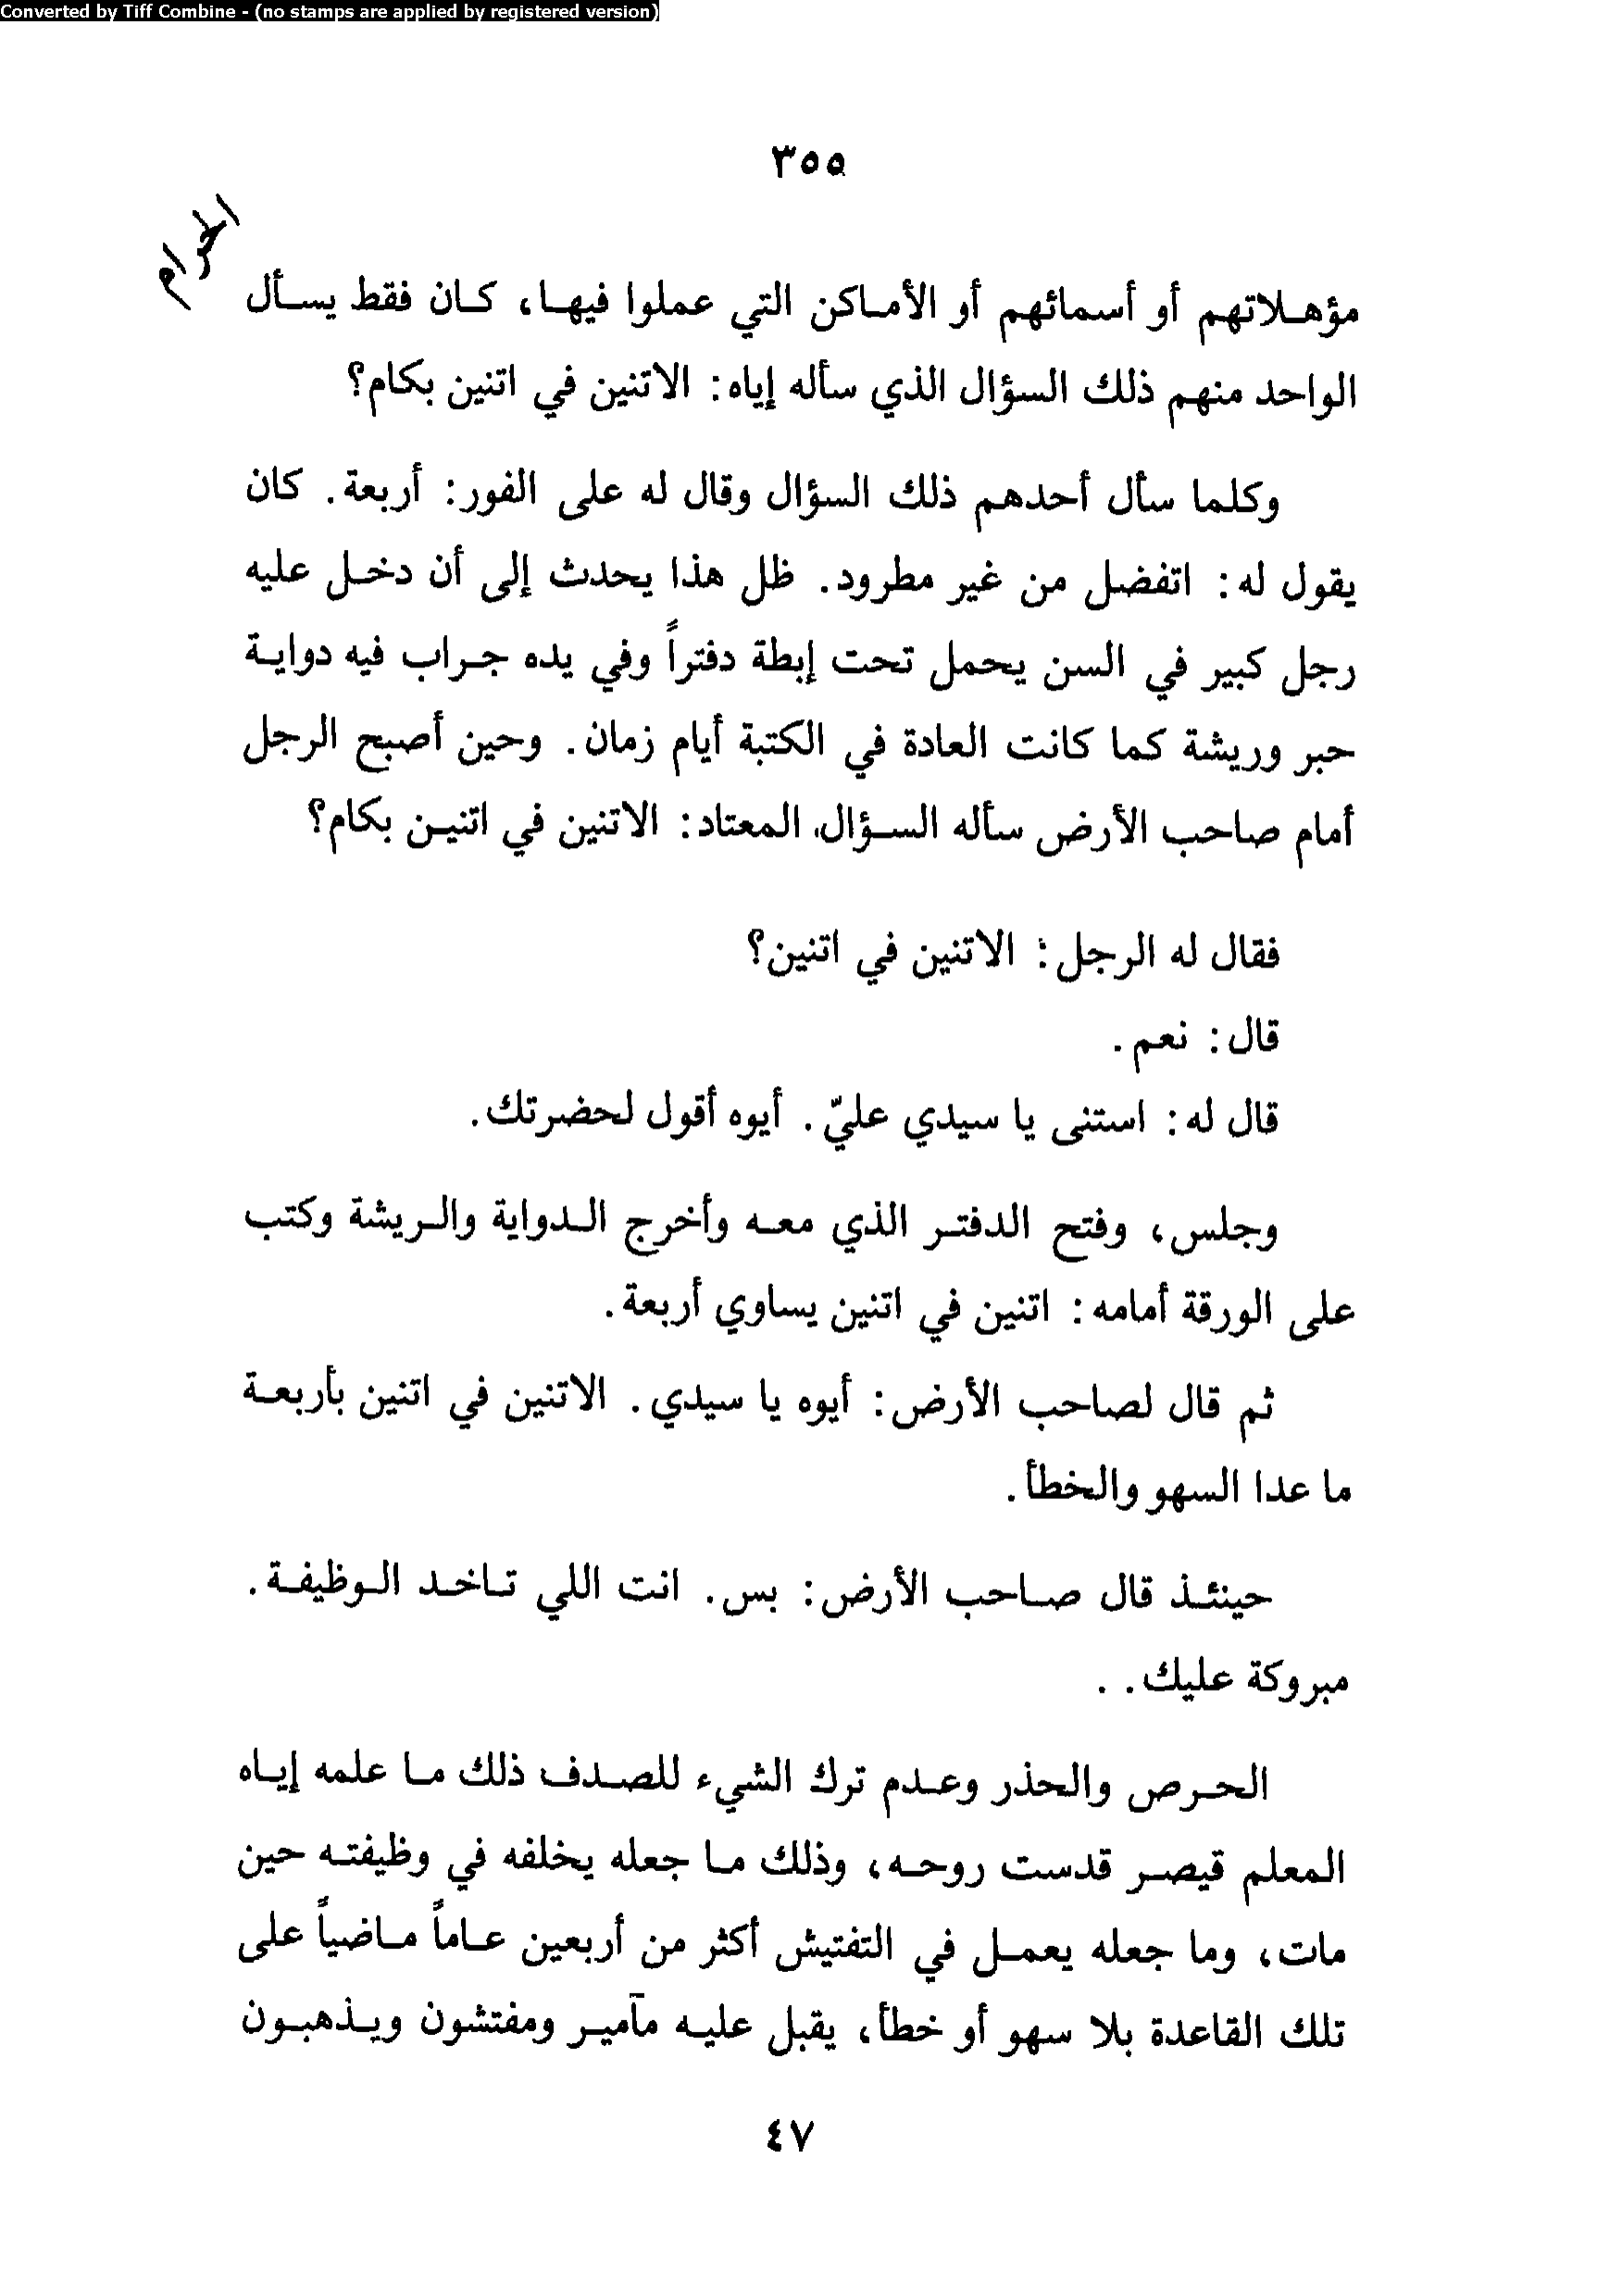 Converted by Tiff Combine - (no stamps are applied by registered version)
٣٥٥
الحرام
مؤهلاتهم أو أسمائهم أو الأماكن التي عملوا فيها، كان فقط يسأل
الواحد منهم ذلك السؤال الذي سأله إياه: الاتنين في اتنين بكام؟
وكلما سأل أحدهم ذلك السؤال وقال له على الفور: أربعة. كان
يقول له: اتفضل من غير مطرود. ظل هذا يحدث إلى أن دخل عليه
رجل كبير في السن يحمل تحت إبطة دفتراً وفي يده جراب فيه دواية
حبر وريشة كما كانت العادة في الكتبة أيام زمان. وحين أصبح الرجل
أمام صاحب الأرض سأله السؤال المعتاد: الاتنين في اتنين بكام؟
فقال له الرجل: الاتنين في اتنين؟
قال: نعم.
قال له: استنى يا سيدي عليّ. أيوه أقول لحضرتك.
وجلس، وفتح الدفتر الذي معه وأخرج الدواية والريشة وكتب
على الورقة أمامه: اتنين في اتنين يساوي أربعة.
ثم قال لصاحب الأرض: أيوه يا سيدي. الاتنين في اتنين بأربعة
ما عدا السهو والخطأ.
حينئذ قال صاحب الأرض: بس. انت اللي تاخد الوظيفة.
مبروكة عليك..
الحرص والحذر وعدم ترك الشيء للصدف ذلك ما علمه إياه
المعلم قيصر قدست روحه، وذلك ما جعله يخلفه في وظيفته حين
مات، وما جعله يعمل في التفتيش أكثر من أربعين عاماً ماضياً على
تلك القاعدة بلا سهو أو خطأ، يقبل عليه مآمير ومفتشون ويذهبون
٤٧